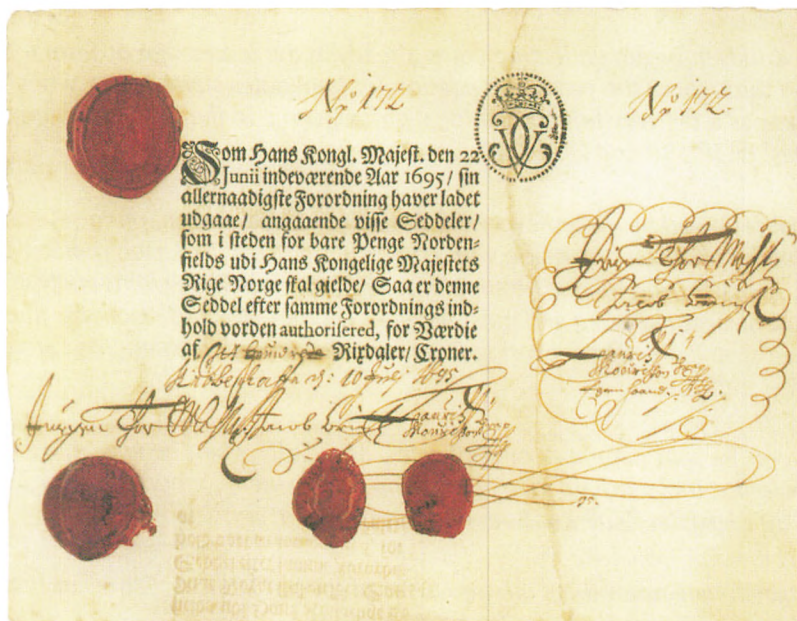 No 172
No 172.
Som Hans Kongl. Majest. den 22
Junii indeværende Aar 1695/ sin
allernaadigste Forordning haver ladet
udgaae/ angaaende visse Seddeler/
som i steden for bare Penge Norden-
fields udi Hans Kongelige Majestets
Rige Norge skal gielde/ Saa er denne
Seddel efter samme Forordnings ind-
hold vorden authoriseret, for Værdie
af Rixdaler/ Croner.
10 July 1695
Jørgen Thor Møhl Jacob
Jørgen Thor Møhl
Jacob